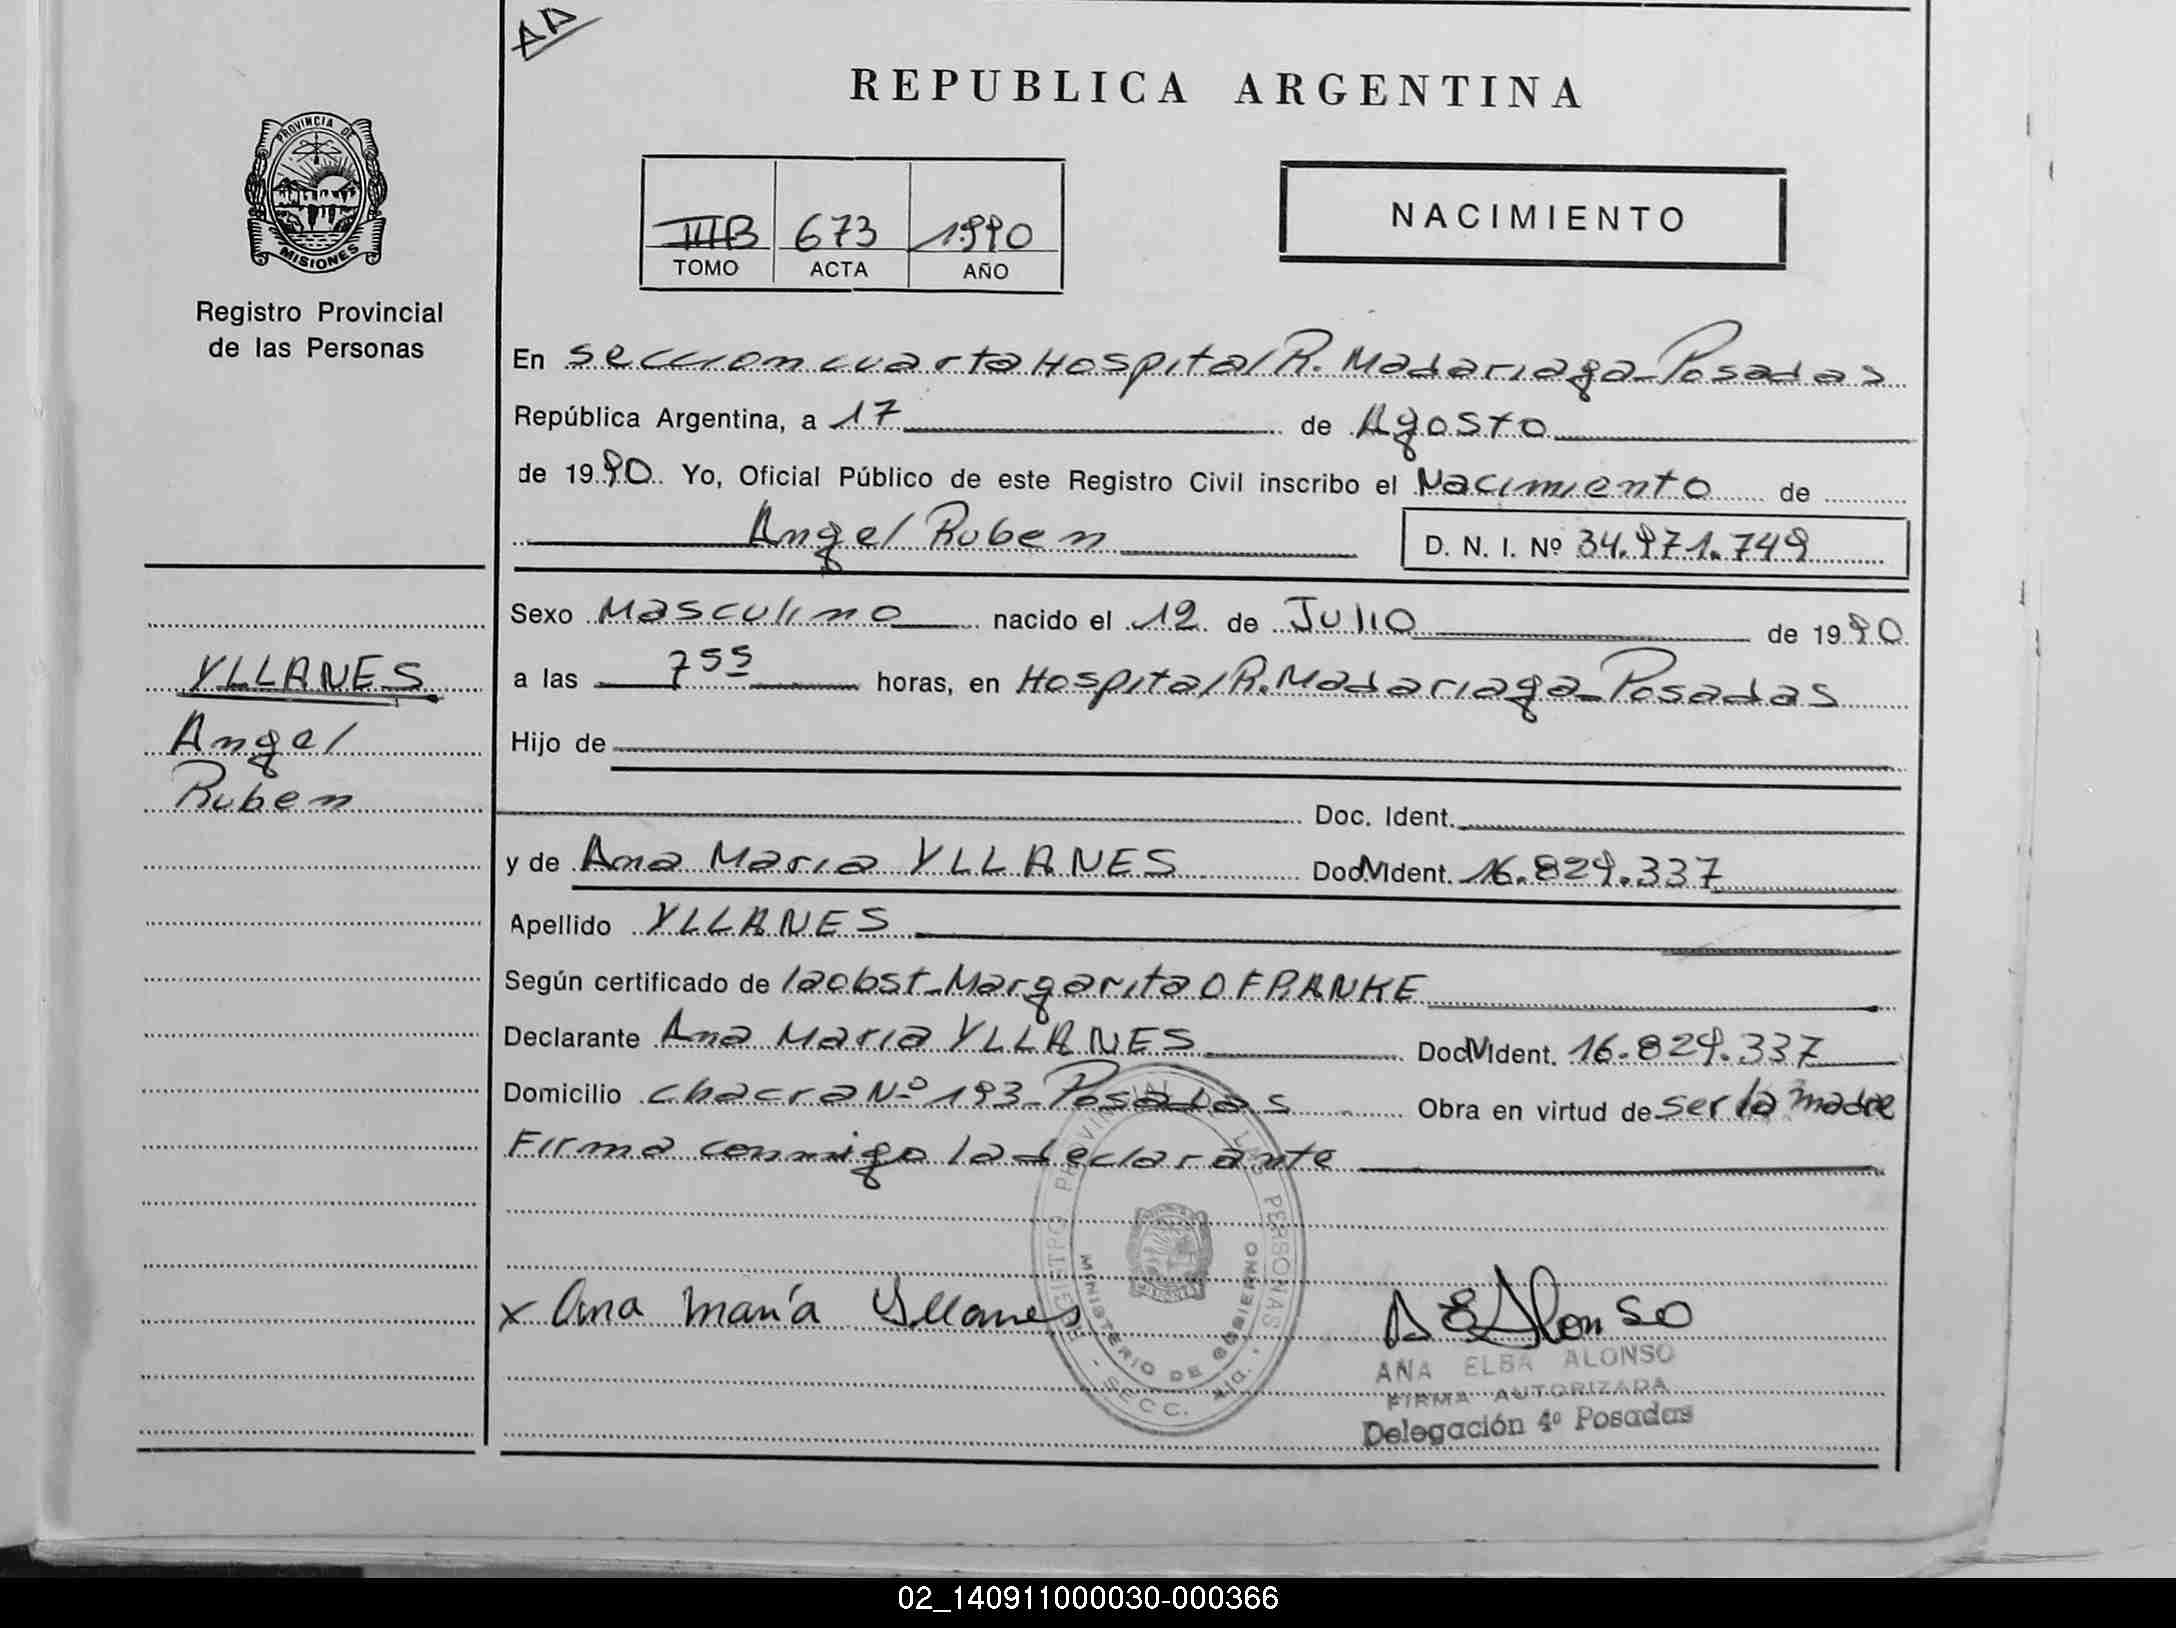 AA
REPUBLICA ARGENTINA
PROVINCIA DE
MISIONES
Registro Provincial
de las Personas
IIIB 673 1990
TOMO ACTA AÑO
NACIMIENTO
En seccion cuarta Hospital R. Madariaga - Posadas
República Argentina, a 17 de Agosto
de 1990. Yo, Oficial Público de este Registro Civil inscribo el Nacimiento de
Angel Ruben D. N. I. Nº 34.971.749
YLLANES
Angel
Ruben
Sexo Masculino nacido el 12 de Julio de 1990
a las 7 55 horas, en Hospital R. Madariaga - Posadas
Hijo de
Doc. Ident.
y de Ana Maria YLLANES Doc. Ident. 16.829.337
Apellido YLLANES
Según certificado de la obst. Margarita O FRANKE
Declarante Ana Maria YLLANES Doc. Ident. 16.829.337
Domicilio chacra Nº 193 - Posadas Obra en virtud de ser la madre
Firma conmigo la declarante
REGISTRO PROVINCIAL LAS PERSONAS
MINISTERIO DE GOBIERNO
SECC. 4ta.
x Ana María Yllanes A E Alonso
ANA ELBA ALONSO
FIRMA AUTORIZADA
Delegación 4º Posadas
02_140911000030-000366